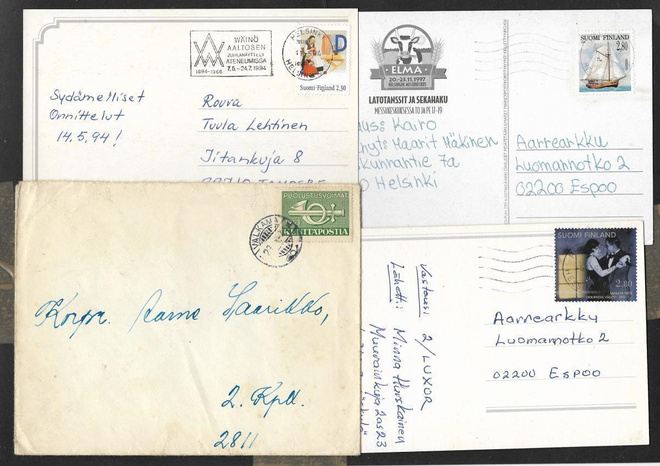 WÄINÖ
AALTOSEN
JUHLANÄYTTELY
ATENEUMISSA
7.5.-24.7.1994
1894-1966
HELSINKI
D
Suomi Finland 2,30
Sydämelliset
Onnittelut
14.5.94!
Rouva
Tuula Lehtinen
Iitankuja 8
ELMA
20.-23.11.1997
LATOTANSSIT JA SEKAHAKU
MESSUKESKUKSESSA TO JA PE 17-19
SUOMI FINLAND
2,80
Kairo
Maarit Mäkinen
7a
Helsinki
Aarrearkku
Luomannotko 2
02200 Espoo
PUOLUSTUSVOIMAT
KENTTÄPOSTIA
VALKAMA
Aarne Saarikko,
2. Kpll.
2811
SUOMI FINLAND
2,80
Vastaus: 2/LUXOR
Lähett: Minna Hurskainen
Muurainkuja 2 as 23
Aarrearkku
Luomannotko 2
02200 Espoo